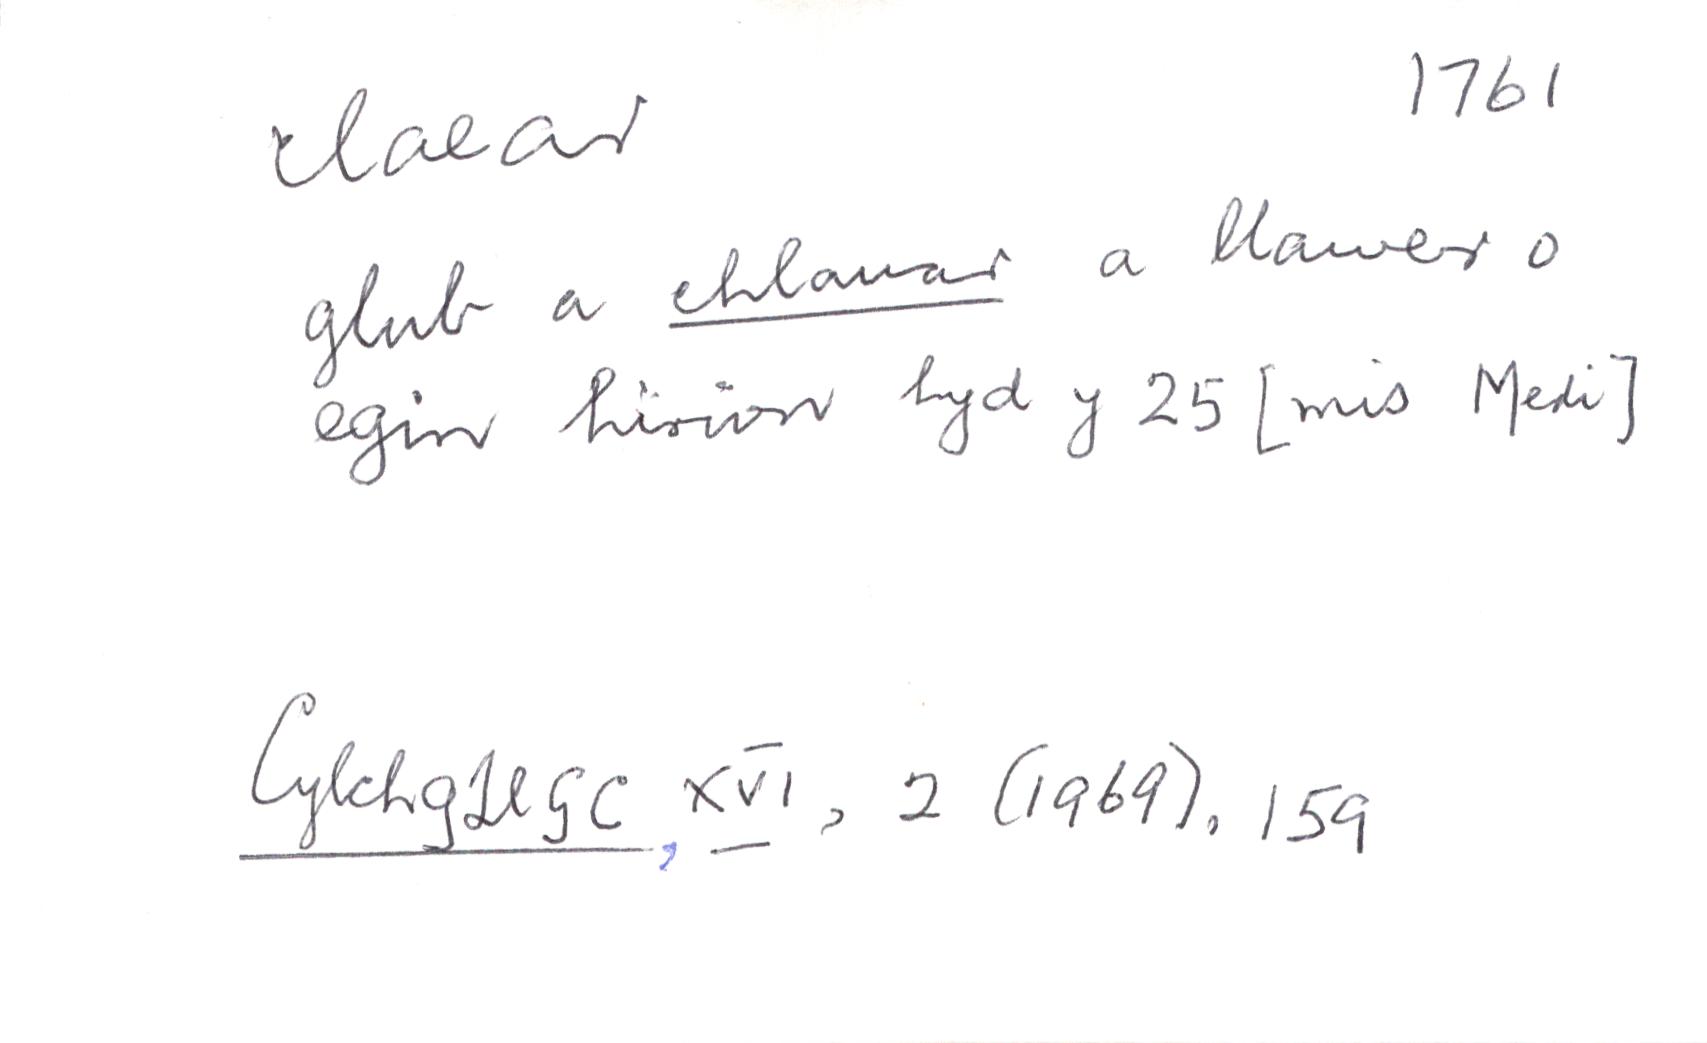 1761
claear
glub a chlauar a llawer o
egin hirion hyd y 25 [mis Medi]
CylchgLlGC, XVI, 2 (1969), 159